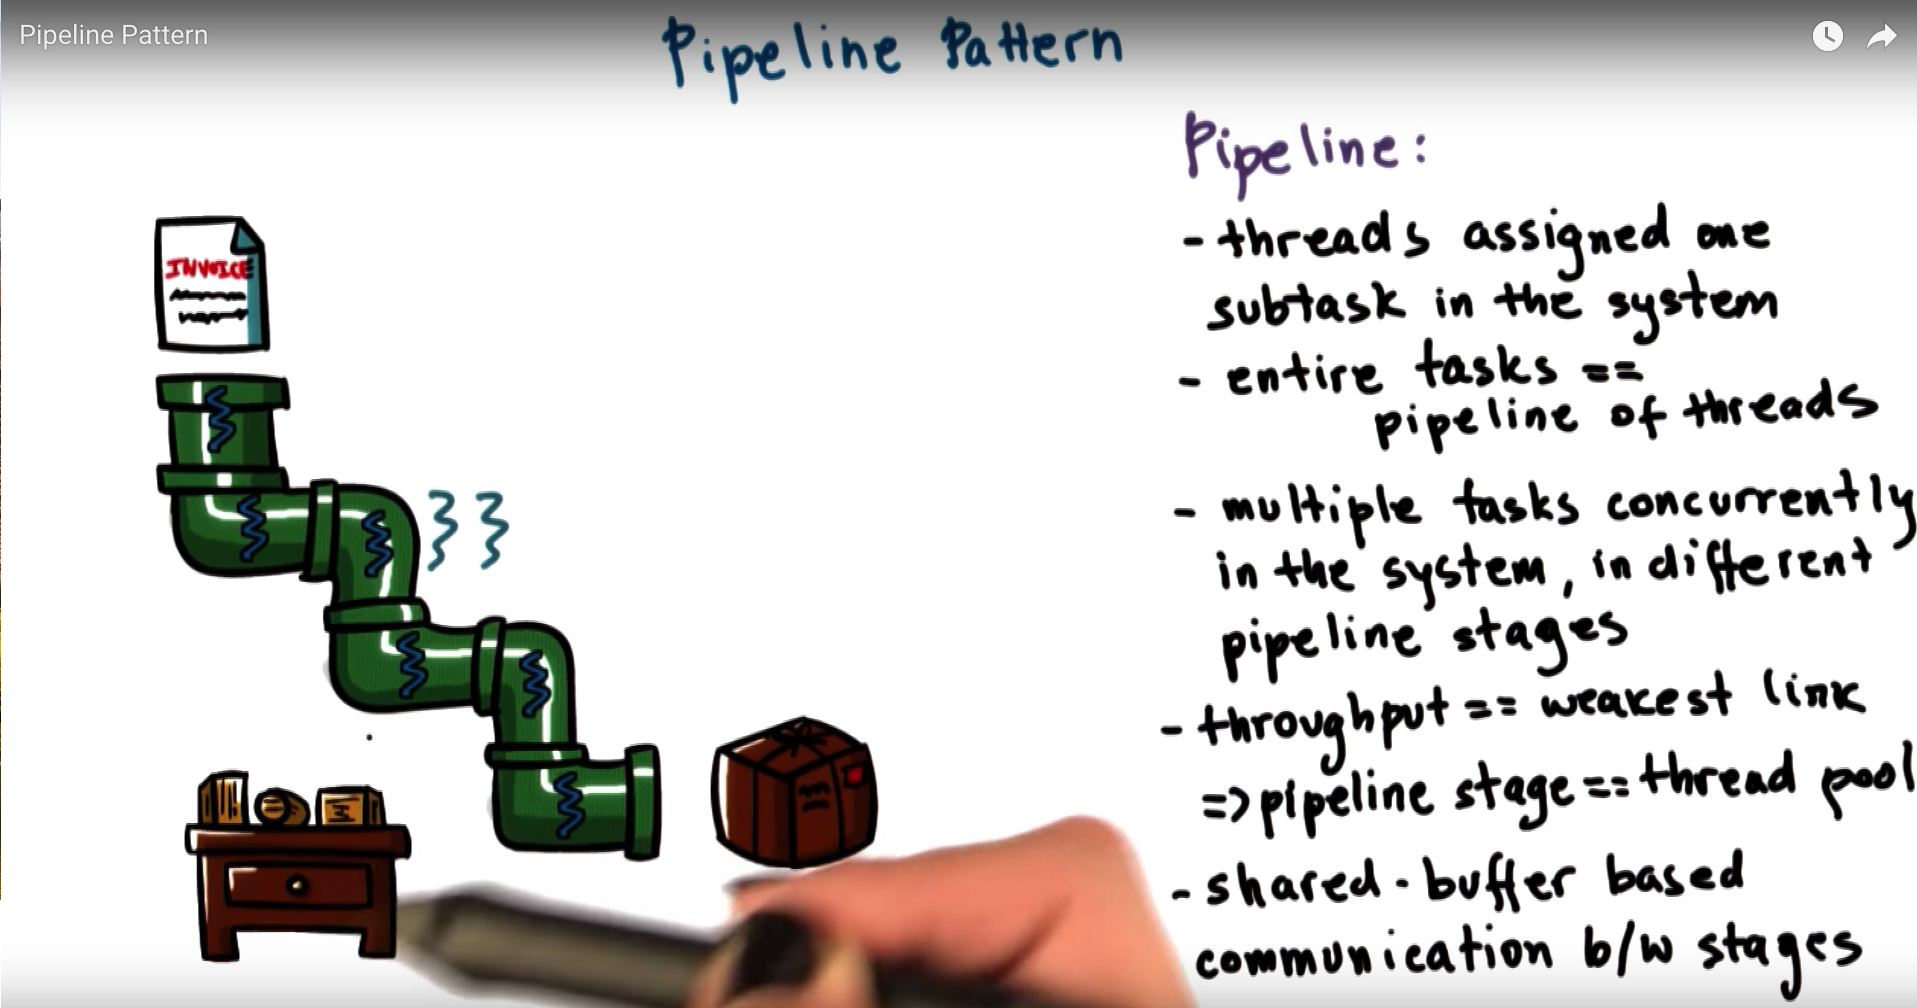 Pipeline Pattern
Pipeline Pattern
Pipeline:
- threads assigned one
subtask in the system
- entire tasks ==
pipeline of threads
- multiple tasks concurrently
in the system, in different
pipeline stages
- throughput == weakest link
=> pipeline stage == thread pool
- shared-buffer based
communication b/w stages
INVOICE